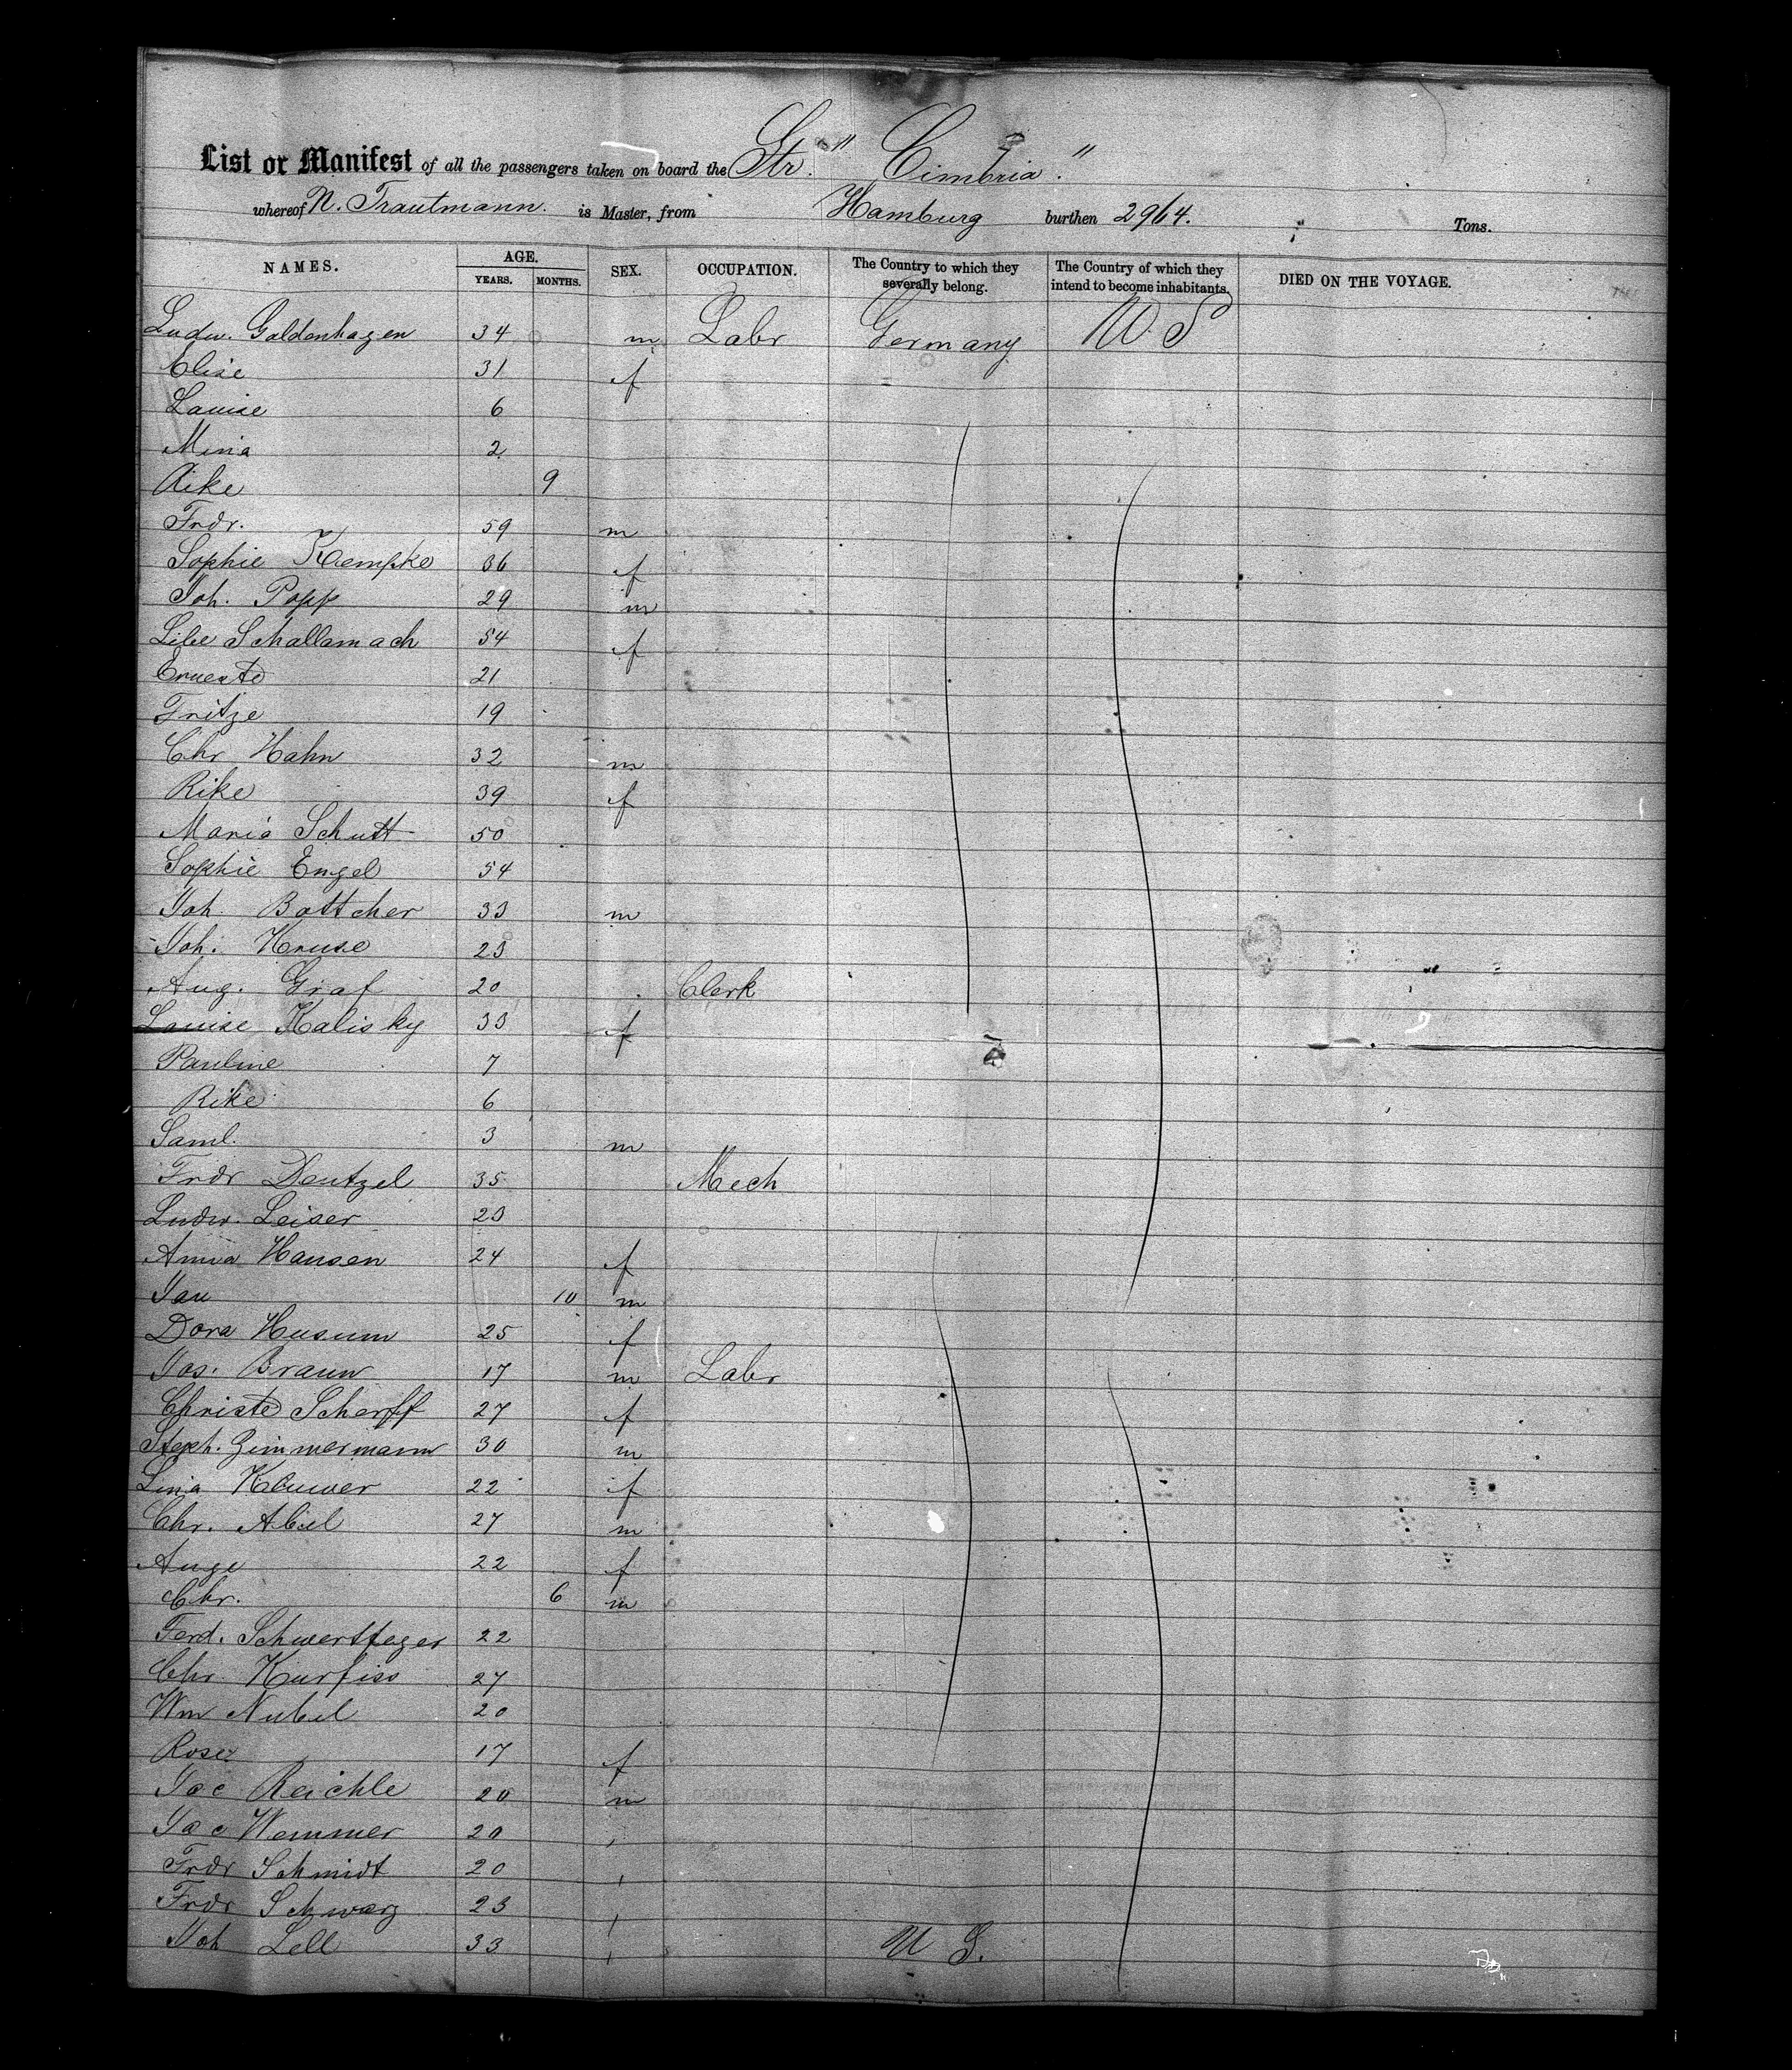 List or Manifest of all the passengers taken on board the Str. "Cimbria."
whereof N. Trautmann. is Master, from Hamburg burthen 2964. Tons.
NAMES. AGE. YEARS. MONTHS. SEX. OCCUPATION. The Country to which they severally belong. The Country of which they intend to become inhabitants. DIED ON THE VOYAGE.
Ludw. Goldenhagen 34 m Labr Germany U. S
Elise 31 f
Louise 6
Mina 2
Rike 9
Frdr. 59 m
Sophie Kempke 36 f
Joh. Popp 29 m
Libe Schallamach 54 f
Erneste 21
Fritze 19
Chr Hahn 32 m
Rike 39 f
Maria Schutt 50
Sophie Engel 54
Joh. Bottcher 33 m
Joh. Kruse 23
Aug. Graf 20 Clerk
Louise Kalisky 33 f
Pauline 7
Rike 6
Saml. 3 m
Frdr Dentzel 35 Mech
Ludw. Leiser 23
Anna Hansen 24 f
Jan 10 m
Dora Husum 25 f
Jos. Braun 17 m Labr
Christe Scherff 27 f
Steph. Zimmermann 30 m
Lina Klauwer 22 f
Chr. Abel 27 m
Auge 22 f
Chr. 6 m
Ferd. Schwertfeger 22
Chr. Kurfiss 27
Wm Nubel 20
Rosez 17 f
Jac Reichle 20 m
Jac Wemmer 20
Frdr Schmidt 20
Frdr Schwarz 23
Joh Lell 33 U S.